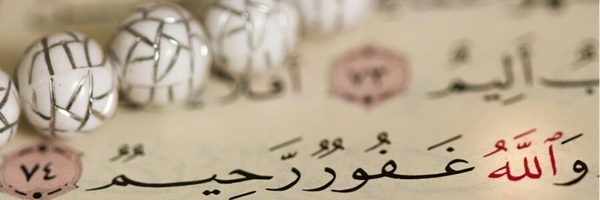 أَلِيمٌ ٧٣ أَفَلَا
وَٱللَّهُ غَفُورٌ رَّحِيمٌ ٧٤